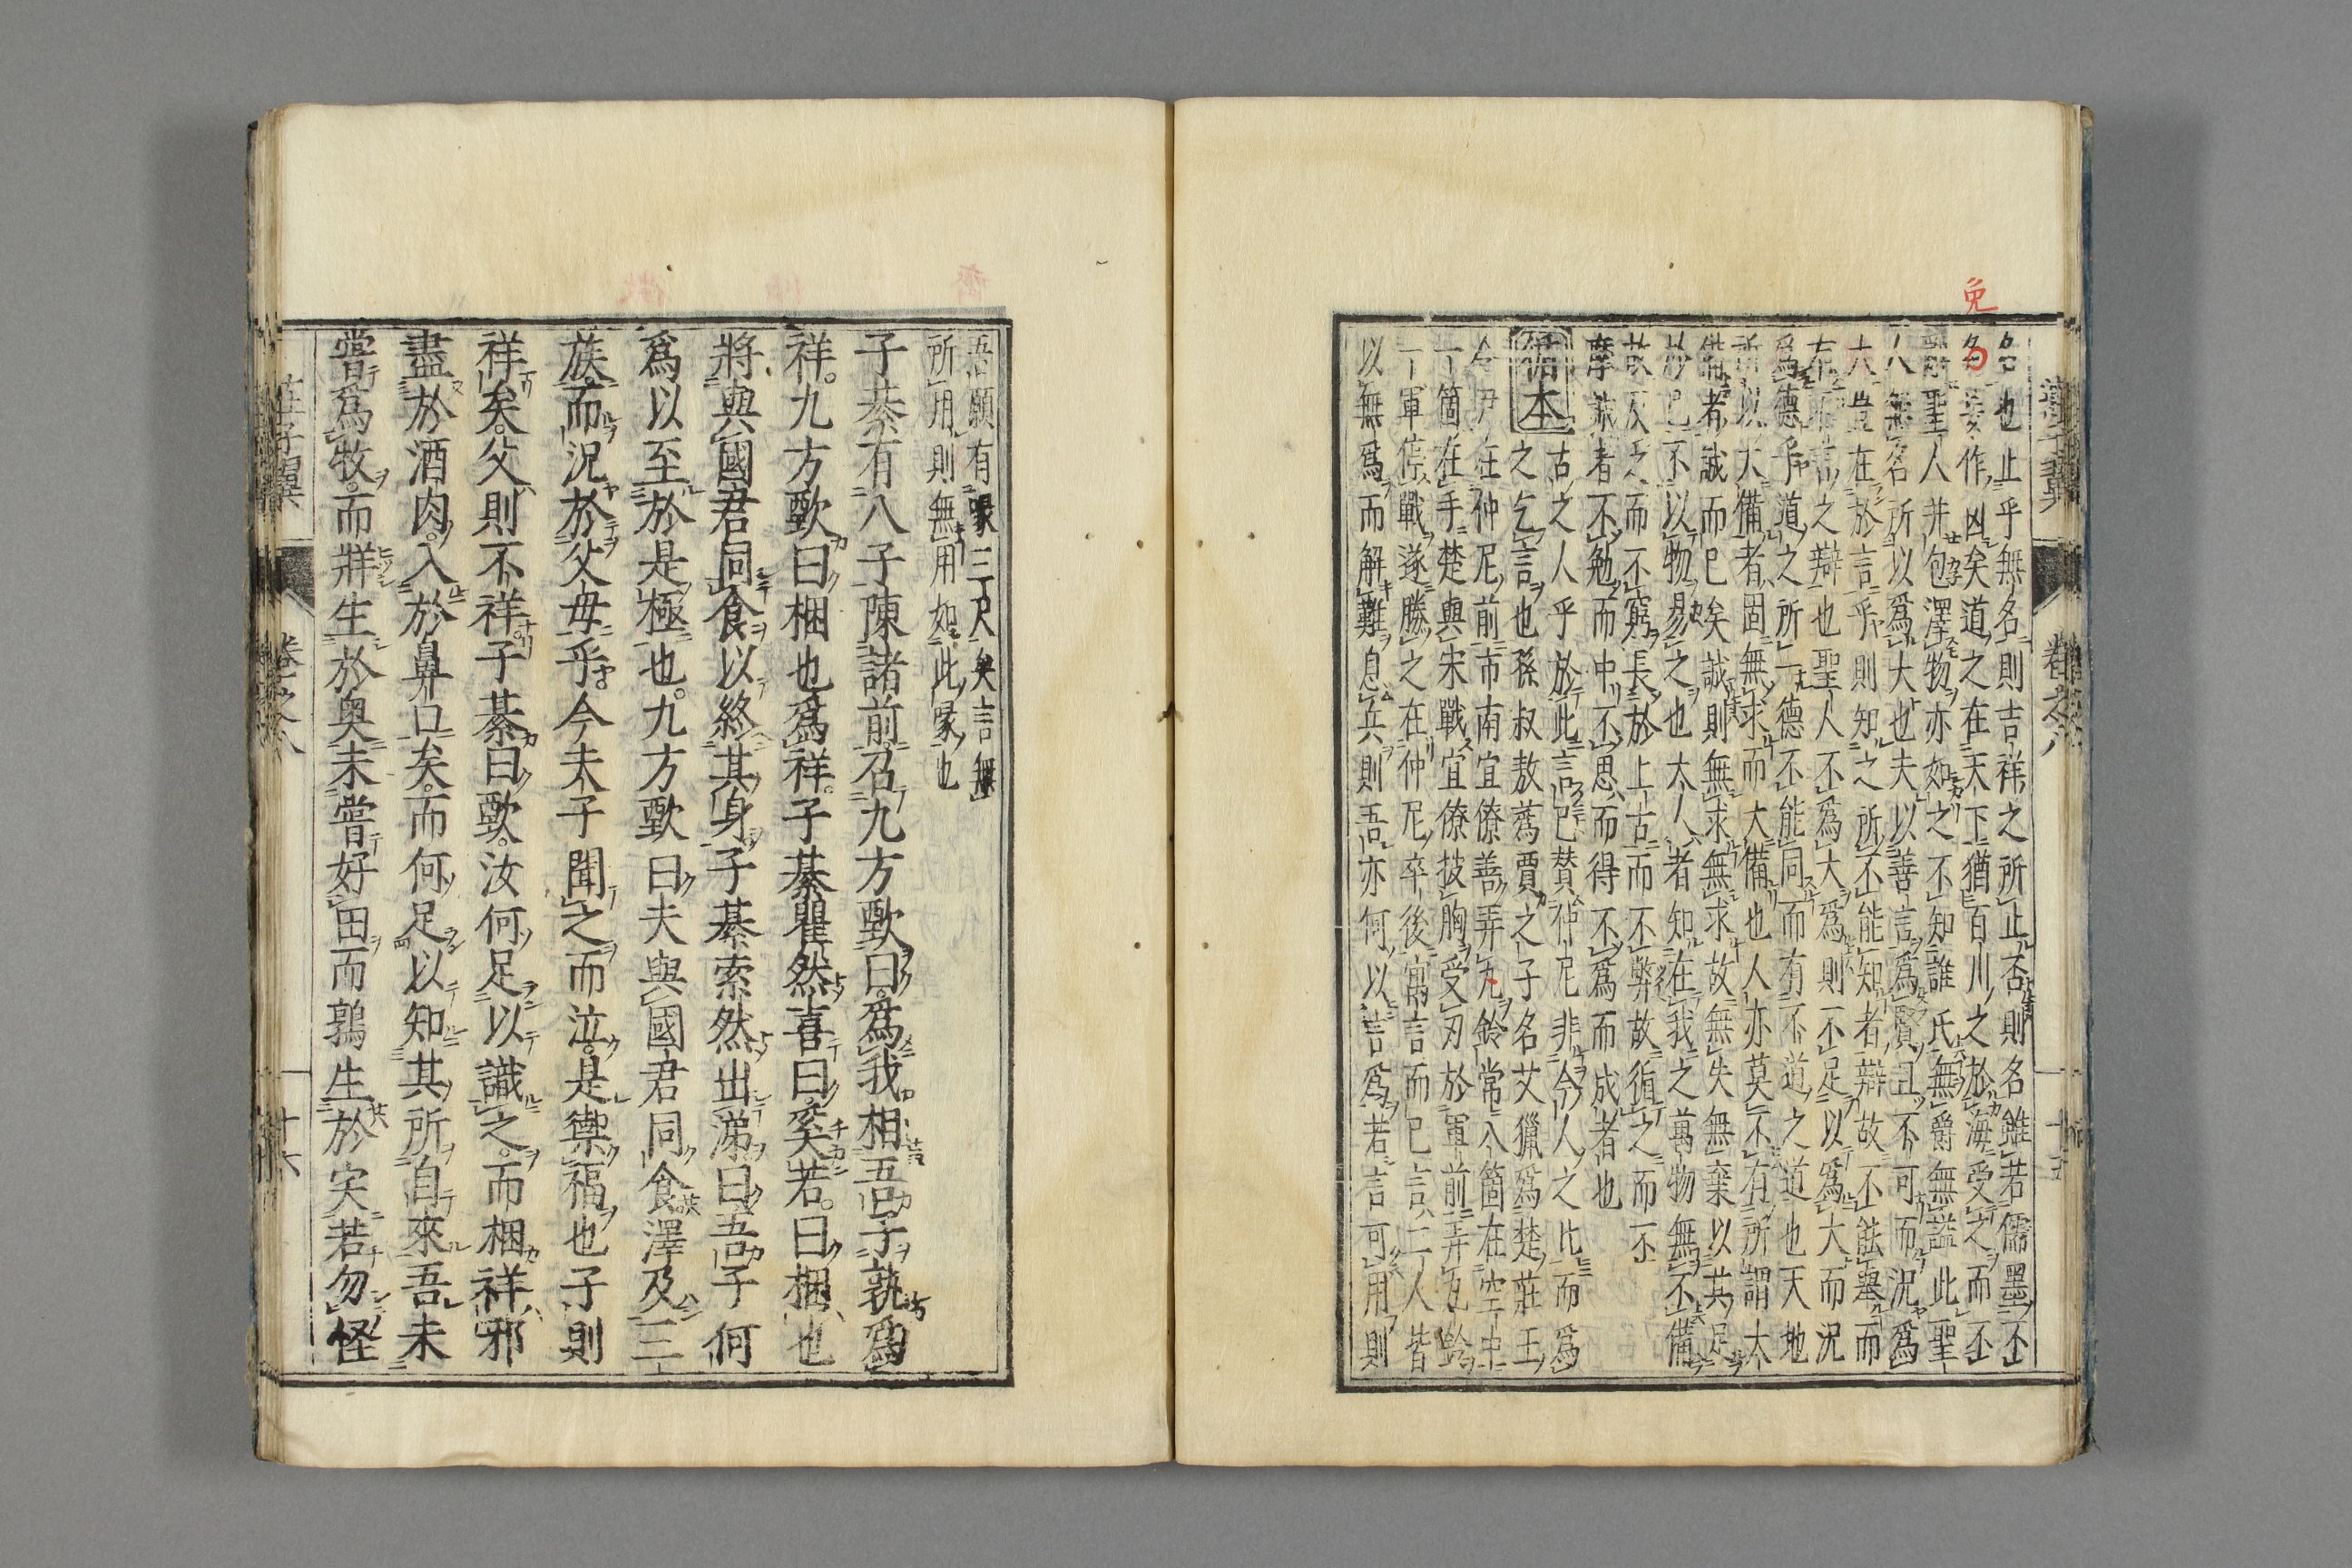 莊子翼 卷之八 十五
免
名也止乎無名則吉祥之所止否則名雖若儒墨不
名妄作凶矣道之在天下猶百川之於海受之而不
辭聖人并包澤物亦如之不知誰氏無爵無謚此聖
人無名所以爲大也夫以善言爲賢且不可而況爲
大豈在於言乎則知之所不能知者辯故不能舉而
有不言之辯也聖人不爲大爲則不足以爲大而況
爲德乎道之所一德不能同而有不道之道也天地
所以大備者固無求而大備也人亦莫不有所謂大
備者誠而已矣誠則無求無求故無失無棄以其足
於己不以物易之也大人者知在我之萬物無不備
故反之而不窮長於上古而不弊故循之而不
摩誠者不勉而中不思而得不爲而成者也
循本 古之人乎於此言已賛仲尼非今人之比而爲
之乞言也孫叔敖蒍賈之子名艾獵爲楚莊王
令尹在仲尼前市南宜僚善弄丸鈴常八箇在空中
一箇在手楚與宋戰宜僚披胸受刃於軍前弄丸鈴
一軍停戰遂勝之在仲尼卒後寓言而已言二人皆
以無爲而解難息兵則吾亦何以言爲若言可用則
吾願有喙三尺矣言無
所用則無用如此喙也
子綦有八子陳諸前召九方歅曰爲我相吾子孰爲
祥九方歅曰梱也爲祥子綦瞿然喜曰奚若曰梱也
將與國君同食以終其身子綦索然出涕曰吾子何
爲以至於是極也九方歅曰夫與國君同食澤及三
族而況於父母乎今夫子聞之而泣是禦福也子則
祥矣父則不祥子綦曰歅汝何足以識之而梱祥邪
盡於酒肉入於鼻口矣而何足以知其所自來吾未
嘗爲牧而牂生於奥未嘗好田而鶉生於宎若勿怪
莊子翼 卷之八 十六